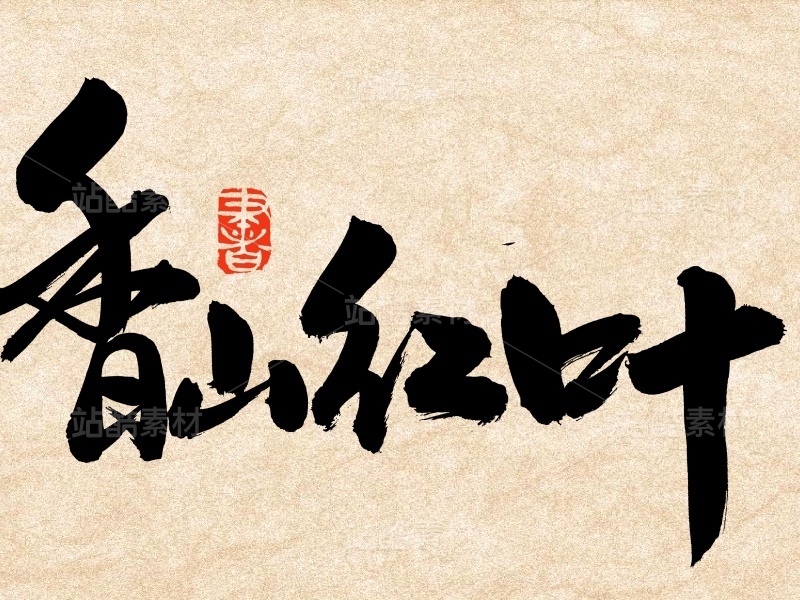 香山红叶
站酷素材
站酷素材
站酷素材
站酷素材